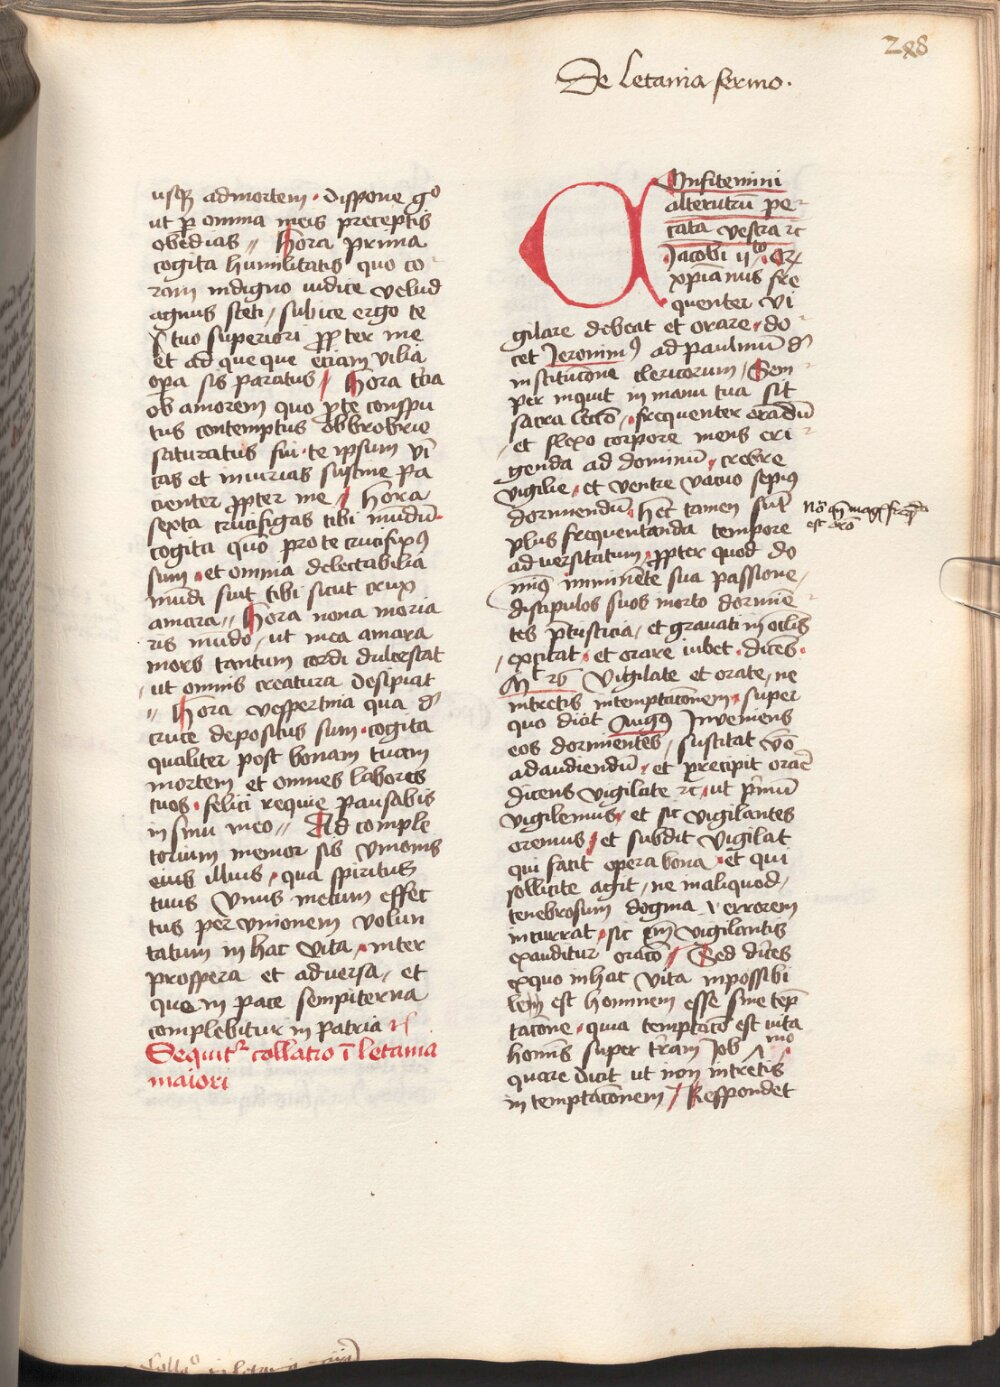 288
De letania sermo.
usqꝫ ad mortem · dispone gͦ
ut ꝑ omnia meis preceptis
obedias // Hora prima
cogita humilitatis quo co-
ram indigno iudice velud
agnus steti / subice ergo te
tuo superiori ꝓpter me
et ad queque eciam vilia
oꝑa sis paratus / Hora tͨia
ob amorem quo ꝓ te conspu
tus contemptus obbrobriis
saturatus fui · te ipsum vi
cas et iniurias sustine pa
cienter ꝓpter me / Hora
sexta crucifigas tibi mūdū
cogita quō pro te crucifixꝰ
sum · et omnia delectabilia
mūdi sint tibi sicut crux
amara // Hora nona moria
ris mūdo / ut mea amara
mors tantum cordi dulcescat
ut omnis creatura desipiat
// Hora vespertina qua d̄
cruce depositus sum · cogita
qualiter post bonam tuam
mortem et omnes labores
tuos · felici requie pausabis
in sinu meo // Ad comple
torium memor sis vnionis
eius illius · qua spiritus
tuus vnus mecum effec
tus per vnionem volun
tatum in hac vita · inter
prospera et aduersa / et
que in pace sempiterna
complebitur in patria
Sequitᷣ collatio ī letania
maiori
Confitemini
alterutrū pec-
cata vestra ⁊c
Jacobi
xp̄ianus fre
quenter vi
gilare debeat et orare · do-
cet Jeronimꝰ ad paulinū d̄
institucōne clericorum / Sem-
per inquit in manu tua sit
sacra lectō · frequenter orādū
et flexo corpore mens eri-
genda ad dominū · crebre
vigilie · et ventre vacuo sepiꝰ
dormiendū · Hec tamen
plus frequentanda tempore
aduersitatum · ꝓpter quod do
minꝰ imminēte sua passione /
discipulos suos morto dormiē-
tes p̄ tristicia / et grauati in oc̄lis
/ excitat · et orare iubet · dicēs ·
Vigilate et orate / ne
intretis in temptacōnem · super
quo dicit Augꝰ Inueniens
eos dormientes / suscitat vō
ad audiendū · et precipit orare
dicens vigilate ⁊c · ut p̄mū
vigilemus · et sic vigilantes
oremus / et subdit vigilat
qui facit opera bona · et qui
sollicite agit / ne in aliquod /
tenebrosum dogma errorem
incurrat · sic em̄ vigilantis
exauditur oracō // Sed dices
exquo in hac vita inpossibi
lem est hominem esse sine temp
tacōne · quia temptacō est vita
homīs super t̄ram Job
quare dicit ut non intretis
in temptacōnem / Respondet
est orō